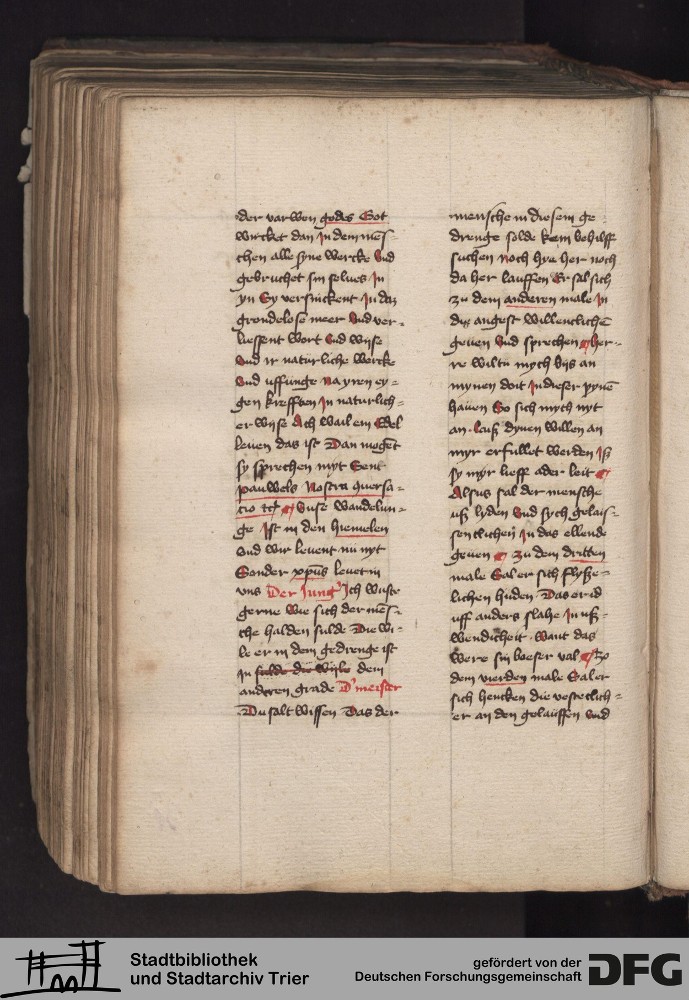 der varwen godes Got
wircket dan in dem mēs-
chen alle syne wercke Vnd
gebruchet sin selues in
yn Sy versinckent in daz
grondelose meer Vnd ver-
liessent wort Vnd wise
Vnd ir naturliche wercke
Vnd uffunge na yren ey-
gen krefften in naturlich-
er wise Ach wail ein Edel
leuen das ist Dan mogēt
sy sprechen myt Sent
pauwels Nostra quersa-
cio Vnse wandelun-
ge ist in den hiemelen
Vnd wir leuent nu nyt
Sonder xpūs leuet in
vns Der Jung Ich wuste
gerne wie sich der mēs-
che halden sulde Die wi-
le er in dem gedrenge ist
in sulde die wile dem
anderen grade D' meister
Du salt wissen Das der
mensche in diesem ge-
drenge solde kein behilff
suchen Noch hye her noch
da her lauffen Er sal sich
zu dem anderen male in
die angest willenclichē
geuen Vnd sprechen her-
re wiltu mych bys an
mynen doit in dieser pynē
hauen So sich myth nyt
an laiß dynen willen an
myr erfullet werden iß
sy myr lieff oder leit
Alsus sal der mensche
uß lyden Vnd sych gelais-
sentlichen in das ellende
geuen zu dem dritten
male Sal er sich flysse-
lichen huden Das er id
uff anders slahe in uß-
wendicheit want das
were sin boeser val Zo
dem vierden male Sal er
sich hencken die vesteclich-
er an den gelauffen Vnd
Stadtbibliothek
und Stadtarchiv Trier
gefördert von der
Deutschen Forschungsgemeinschaft
DFG